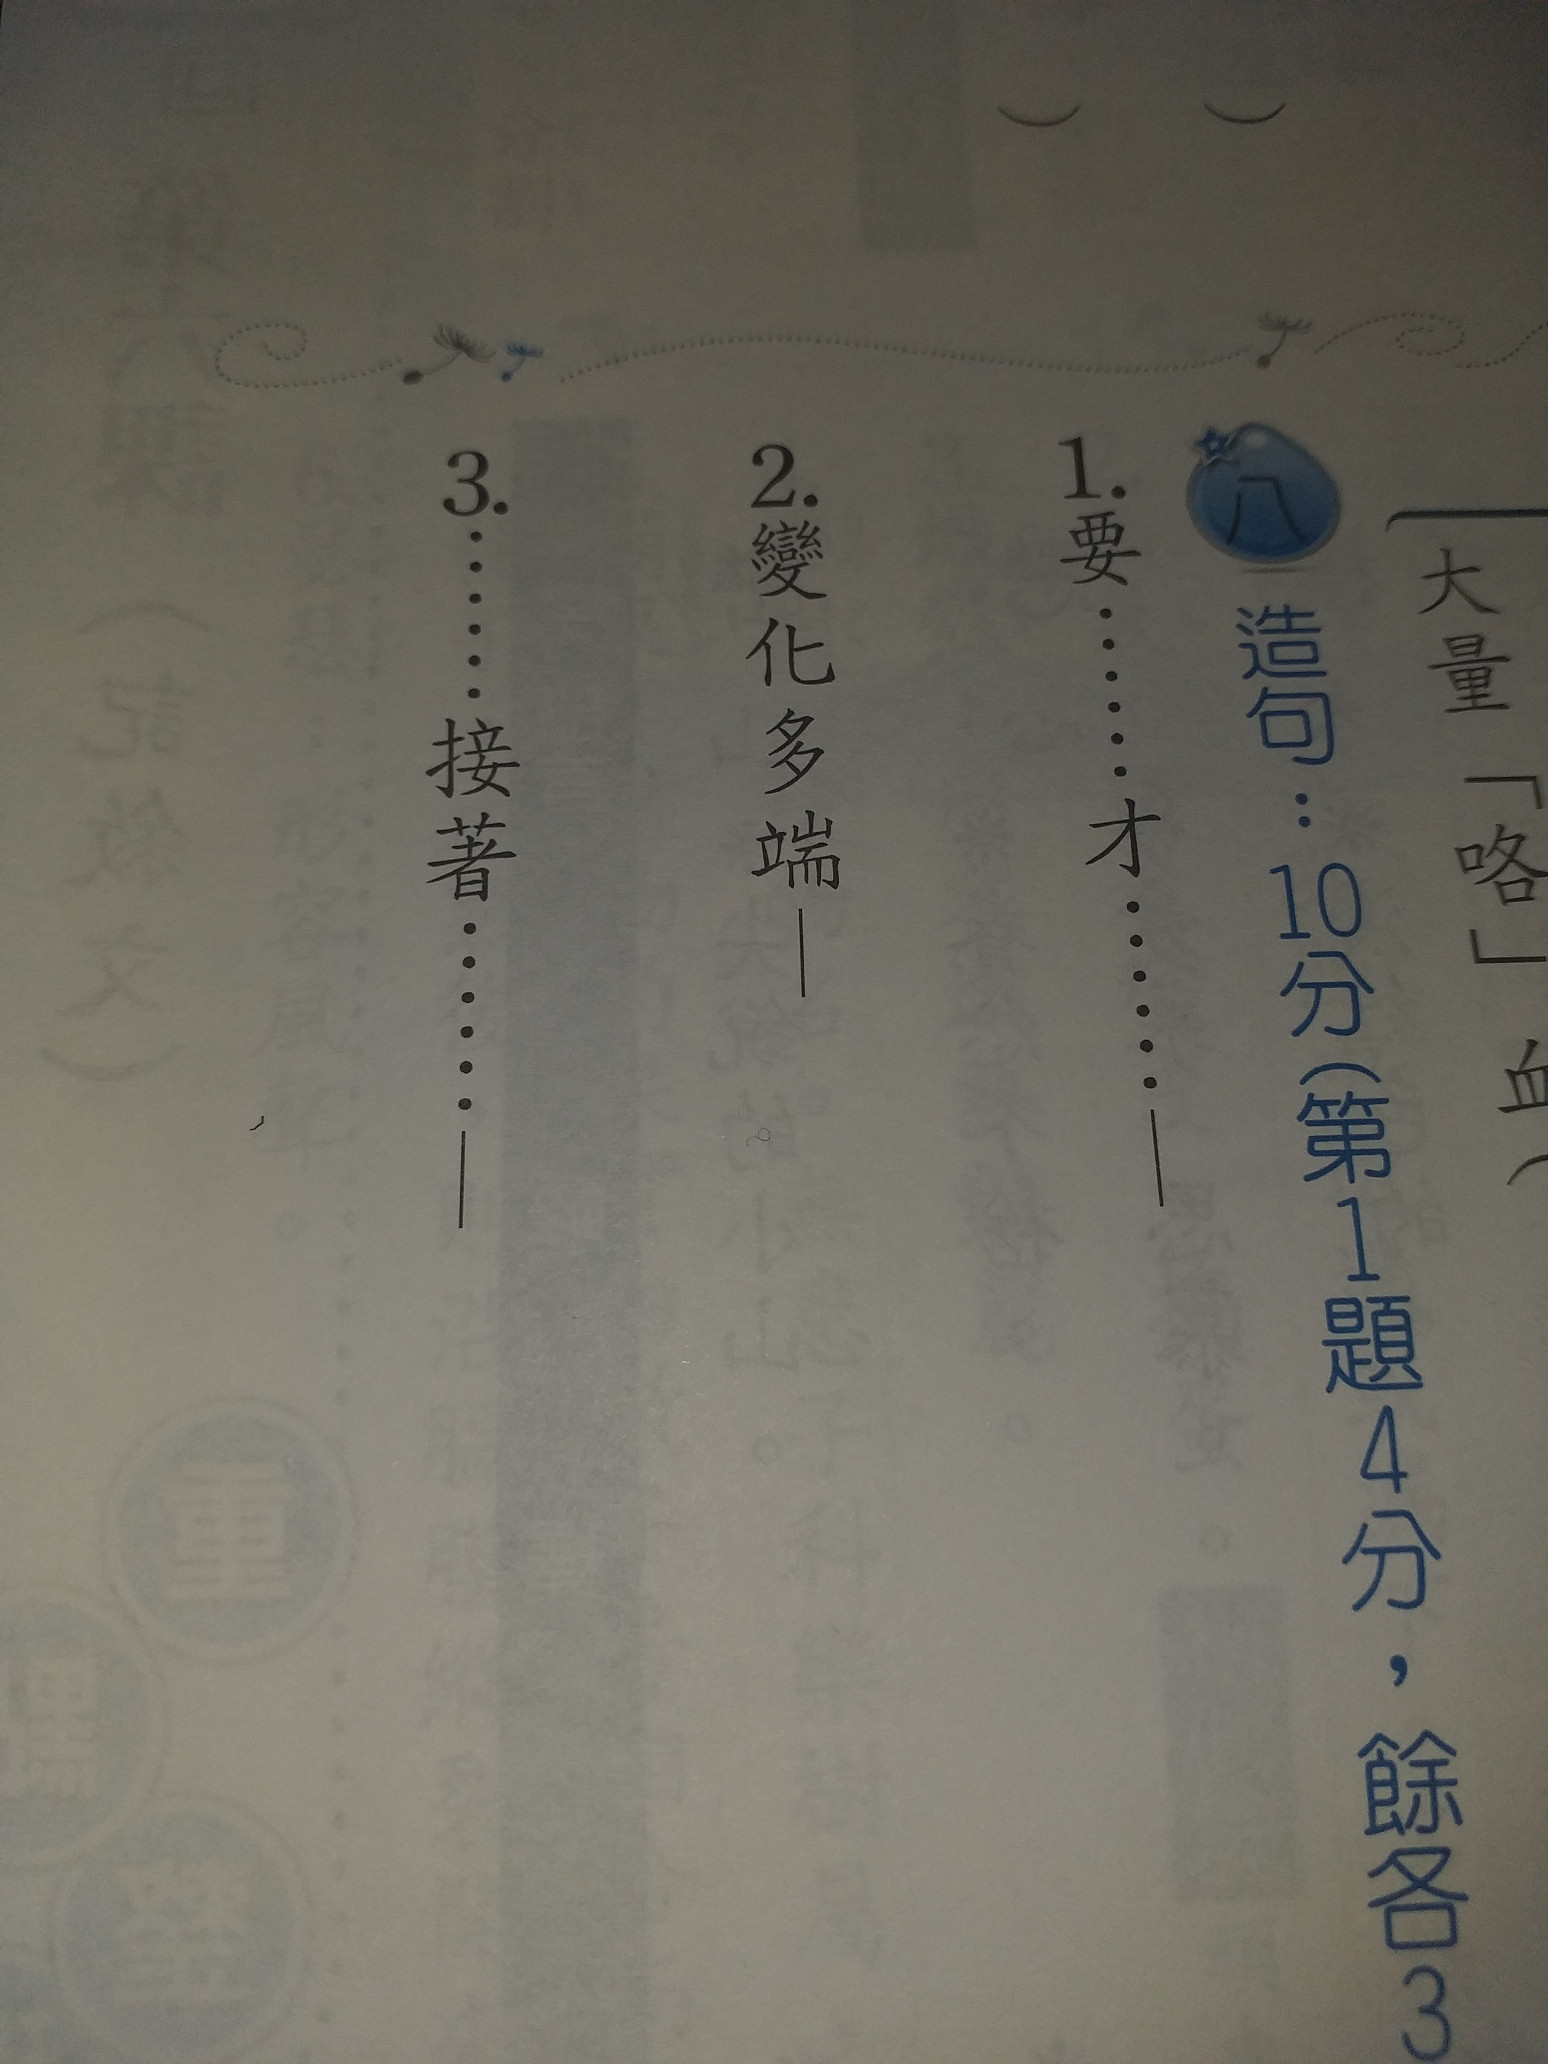 大量「咯」血(
八 造句：10分(第1題4分，餘各3
1.要……才……—
2.變化多端—
3.……接著……—